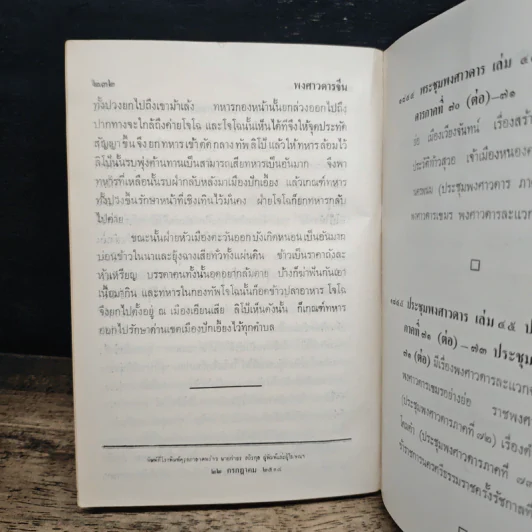 ๒๓๒
พงศาวดารจีน
ทั้งปวงยกไปถึงเขาม้าเล้ง ทหารกองหน้านั้นยกล่วงออกไปถึง
ปากทางจะใกล้ถึงค่ายโจโฉ และโจโฉนั้นเห็นได้ทีจึงให้จุดประทัด
สัญญาขึ้น จึงยกทหารเข้าตัดกลางทัพลิโป้ แล้วให้ทหารล้อมไว้
ลิโป้นั้นรบพุ่งต้านทานเป็นสามารถเสียทหารเป็นอันมาก จึงพา
ทหารที่เหลือนั้นรบฝ่ากลับหลังมาเมืองปักเอี้ยง แล้วเกณฑ์ทหาร
ทั้งปวงขึ้นรักษาหน้าที่เชิงเทินไว้มั่นคง ฝ่ายโจโฉก็ยกทหารกลับ
ไปค่าย
ขณะนั้นฝ่ายหัวเมืองตะวันออกบังเกิดหนอนเป็นอันมาก
บ่อนข้าวในนาและยุ้งฉางเสียทั่วทั้งแผ่นดิน ข้าวเป็นราคาถังละ
ห้าเหรียญ บรรดาคนทั้งนั้นอดอยากล้มตาย บ้างก็ฆ่าฟันกันเอา
เนื้อมากิน และทหารในกองทัพโจโฉนั้นก็อดข้าวปลาอาหาร โจโฉ
จึงยกไปตั้งอยู่ ณ เมืองเอียนเสีย ลิโป้เห็นดังนั้น ก็เกณฑ์ทหาร
ออกไปรักษาด่านเขตเมืองปักเอี้ยงไว้ทุกตำบล
๒๒ กรกฎาคม
ประชุมพงศาวดาร เล่ม
ภาคที่ ๗๐ (ต่อ)–๗๑
เมืองเวียงจันทน์ เรื่อง
เข้าเมืองหนองค
(ประชุมพงศาวดาร ภา
พงศาวดารเขมร พงศาวดารละแวก
ประชุมพงศาวดาร เล่ม ๔๕ ป
ภาคที่ ๗๑ (ต่อ) –๗๓ ประชุม
๗๑ (ต่อ) มีเรื่องพงศาวดารละแวก
พงศาวดารเขมรอย่างย่อ ราชพง
(ประชุมพงศาวดารภาคที่ ๗๒) เรื่อง
(ประชุมพงศาวดารภาคที่ ๗